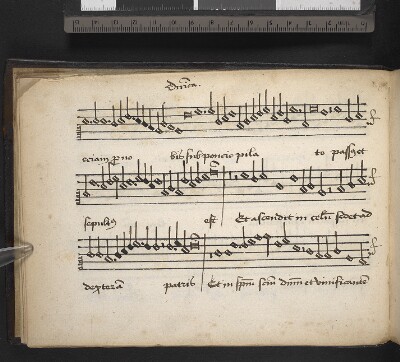 Dnica.
eciam pro no bis sub poncio pila to passus et
sepultus est Et ascendit in celum sedet ad
dexteram patris Et in spm scm dnm et vivificantem